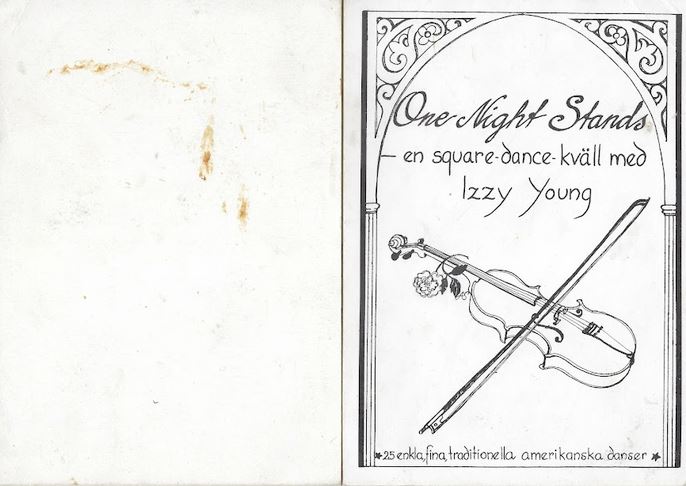 One Night Stands
– en square-dance-kväll med
Izzy Young
★ 25 enkla, fina, traditionella amerikanska danser ★